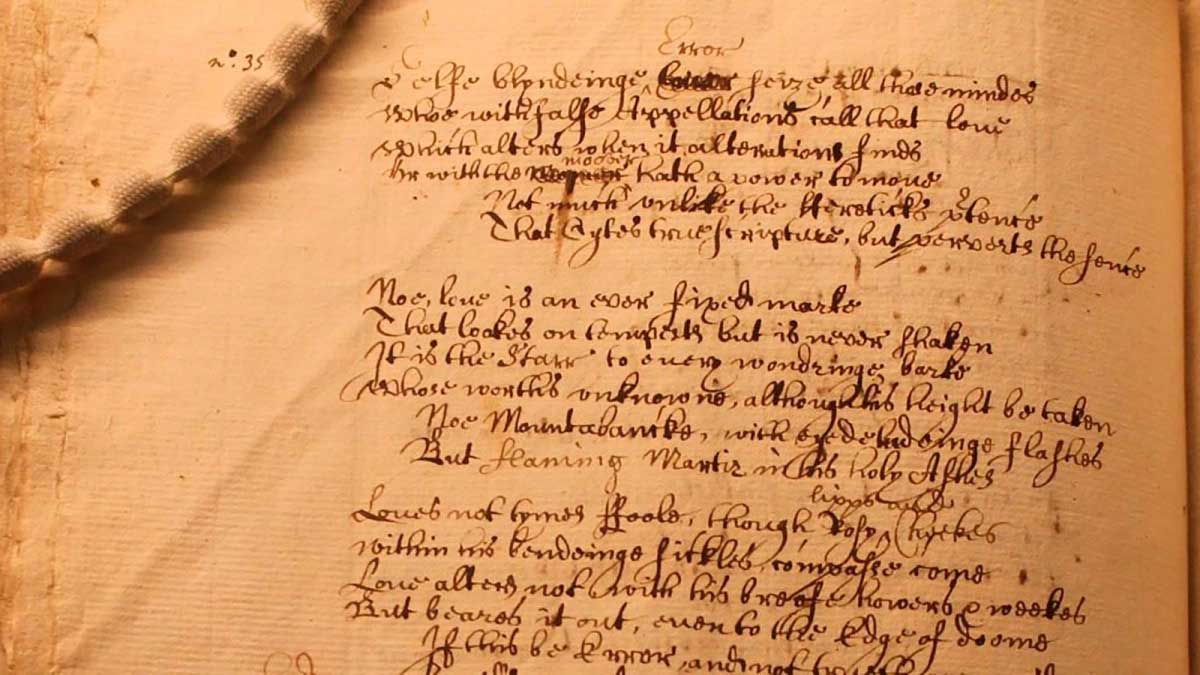 n°: 35
Error
Selfe blyndeinge seize all those mindes
Whoe with false Appellations call that loue
Which alters when it alterations finds
moover
Or with the hath a power to moue
Not much unlike the Hereticks p̱tence
That Cytes true scripture, but perverts the sence
Noe, loue is an ever fixed marke
That lookes on tempests but is never shaken
It is the Starr to every wondringe barke
Whose worths unknowne, although his height be taken
Noe Mountabancke, with eye deludeinge flashes
But flaming Martir in his holy Ashes
lipps and
Loues not tymes Foole, though Rosy Cheekes
within his bendeinge sickles, compasse come
Loue alters not with his breefe howers & weekes
But beares it out, even to the Edge of doome
If this be Error, and not